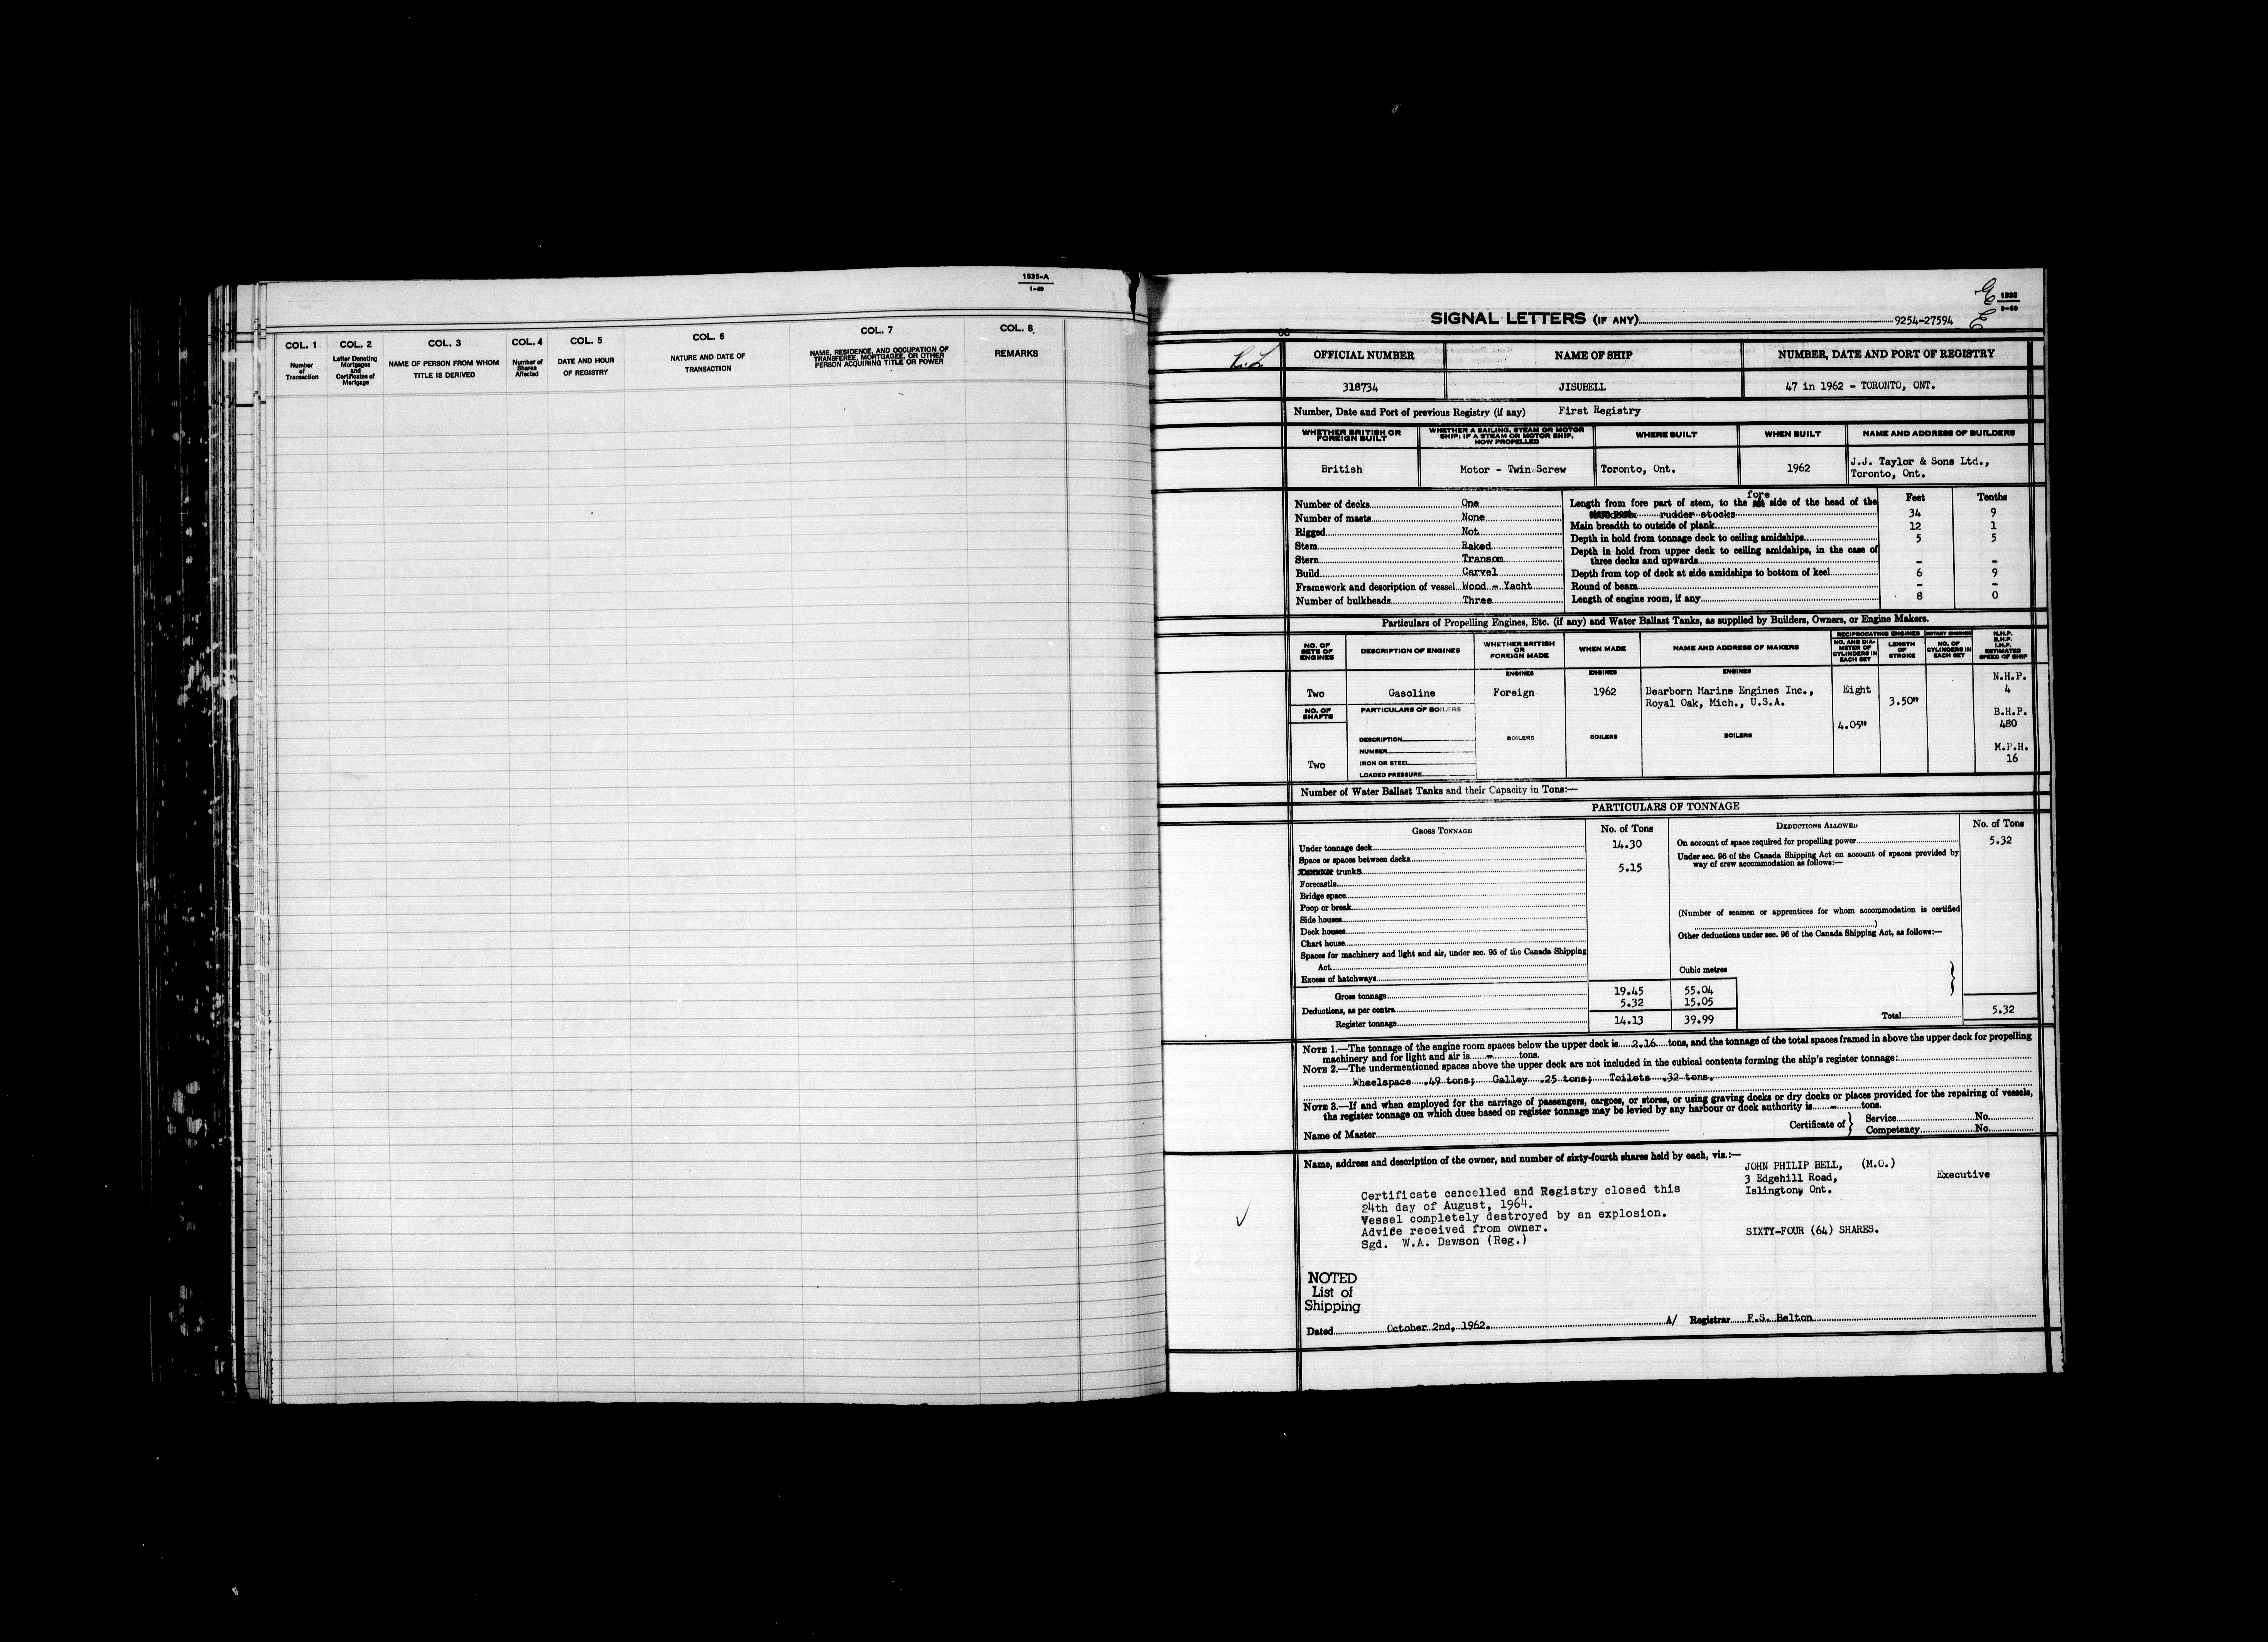 1535-A
1-49
COL. 1
Number
of
Transaction
COL. 2
Letter Denoting
Mortgages
and
Certificates of
Mortgage
COL. 3
NAME OF PERSON FROM WHOM
TITLE IS DERIVED
COL. 4
Number of
Shares
Affected
COL. 5
DATE AND HOUR
OF REGISTRY
COL. 6
NATURE AND DATE OF
TRANSACTION
COL. 7
NAME, RESIDENCE, AND OCCUPATION OF
TRANSFEREE, MORTGAGEE, OR OTHER
PERSON ACQUIRING TITLE OR POWER
COL. 8
REMARKS
1535
SIGNAL LETTERS (IF ANY) 9254-27594
OFFICIAL NUMBER NAME OF SHIP NUMBER, DATE AND PORT OF REGISTRY
318734 JISUBELL 47 in 1962 - TORONTO, ONT.
Number, Date and Port of previous Registry (if any) First Registry
WHETHER BRITISH OR
FOREIGN BUILT
WHETHER A SAILING, STEAM OR MOTOR
SHIP; IF A STEAM OR MOTOR SHIP,
HOW PROPELLED
WHERE BUILT
WHEN BUILT
NAME AND ADDRESS OF BUILDERS
British Motor - Twin Screw Toronto, Ont. 1962 J.J. Taylor & Sons Ltd.,
Toronto, Ont.
Number of decks One
Number of masts None
Rigged Not
Stem Raked
Stern Transom
Build Carvel
Framework and description of vessel Wood - Yacht
Number of bulkheads Three
Feet Tenths
Length from fore part of stem, to the fore side of the head of the
rudder stocks 34 9
Main breadth to outside of plank 12 1
Depth in hold from tonnage deck to ceiling amidships 5 5
Depth in hold from upper deck to ceiling amidships, in the case of
three decks and upwards - -
Depth from top of deck at side amidships to bottom of keel 6 9
Round of beam - -
Length of engine room, if any 8 0
Particulars of Propelling Engines, Etc. (if any) and Water Ballast Tanks, as supplied by Builders, Owners, or Engine Makers.
NO. OF
SETS OF
ENGINES
DESCRIPTION OF ENGINES
WHETHER BRITISH
OR
FOREIGN MADE
WHEN MADE
NAME AND ADDRESS OF MAKERS
RECIPROCATING ENGINES
NO. AND DIA-
METER OF
CYLINDERS IN
EACH SET
LENGTH
OF
STROKE
ROTARY ENGINES
NO. OF
CYLINDERS IN
EACH SET
N.H.P.
B.H.P.
I.H.P.
ESTIMATED
SPEED OF SHIP
ENGINES ENGINES ENGINES
N.H.P.
Two Gasoline Foreign 1962 Dearborn Marine Engines Inc., Eight 4
Royal Oak, Mich., U.S.A. 3.50"
NO. OF
SHAFTS
PARTICULARS OF BOILERS
B.H.P.
4.05" 480
DESCRIPTION BOILERS BOILERS BOILERS
NUMBER M.P.H.
Two IRON OR STEEL 16
LOADED PRESSURE
Number of Water Ballast Tanks and their Capacity in Tons:—
PARTICULARS OF TONNAGE
GROSS TONNAGE No. of Tons
Under tonnage deck 14.30
Space or spaces between decks
trunks 5.15
Forecastle
Bridge space
Poop or break
Side houses
Deck houses
Chart house
Spaces for machinery and light and air, under sec. 95 of the Canada Shipping
Act
Excess of hatchways
Cubic metres
Gross tonnage 19.45 55.04
Deductions, as per contra 5.32 15.05
Register tonnage 14.13 39.99
DEDUCTIONS ALLOWED No. of Tons
On account of space required for propelling power 5.32
Under sec. 96 of the Canada Shipping Act on account of spaces provided by
way of crew accommodation as follows:—
(Number of seamen or apprentices for whom accommodation is certified
)
Other deductions under sec. 96 of the Canada Shipping Act, as follows:—
Total 5.32
NOTE 1.—The tonnage of the engine room spaces below the upper deck is 2.16 tons, and the tonnage of the total spaces framed in above the upper deck for propelling
machinery and for light and air is - tons.
NOTE 2.—The undermentioned spaces above the upper deck are not included in the cubical contents forming the ship's register tonnage:
Wheelspace .49 tons; Galley .25 tons; Toilets .32 tons.
NOTE 3.—If and when employed for the carriage of passengers, cargoes, or stores, or using graving docks or dry docks or places provided for the repairing of vessels,
the register tonnage on which dues based on register tonnage may be levied by any harbour or dock authority is - tons.
Name of Master Certificate of } Service No.
Competency No.
Name, address and description of the owner, and number of sixty-fourth shares held by each, viz.:—
JOHN PHILIP BELL, (M.O.)
3 Edgehill Road, Executive
Islington, Ont.
SIXTY-FOUR (64) SHARES.
Certificate cancelled and Registry closed this
24th day of August, 1964.
Vessel completely destroyed by an explosion.
Advice received from owner.
Sgd. W.A. Dawson (Reg.)
NOTED
List of
Shipping
Dated October 2nd, 1962. A/ Registrar F.S. Belton